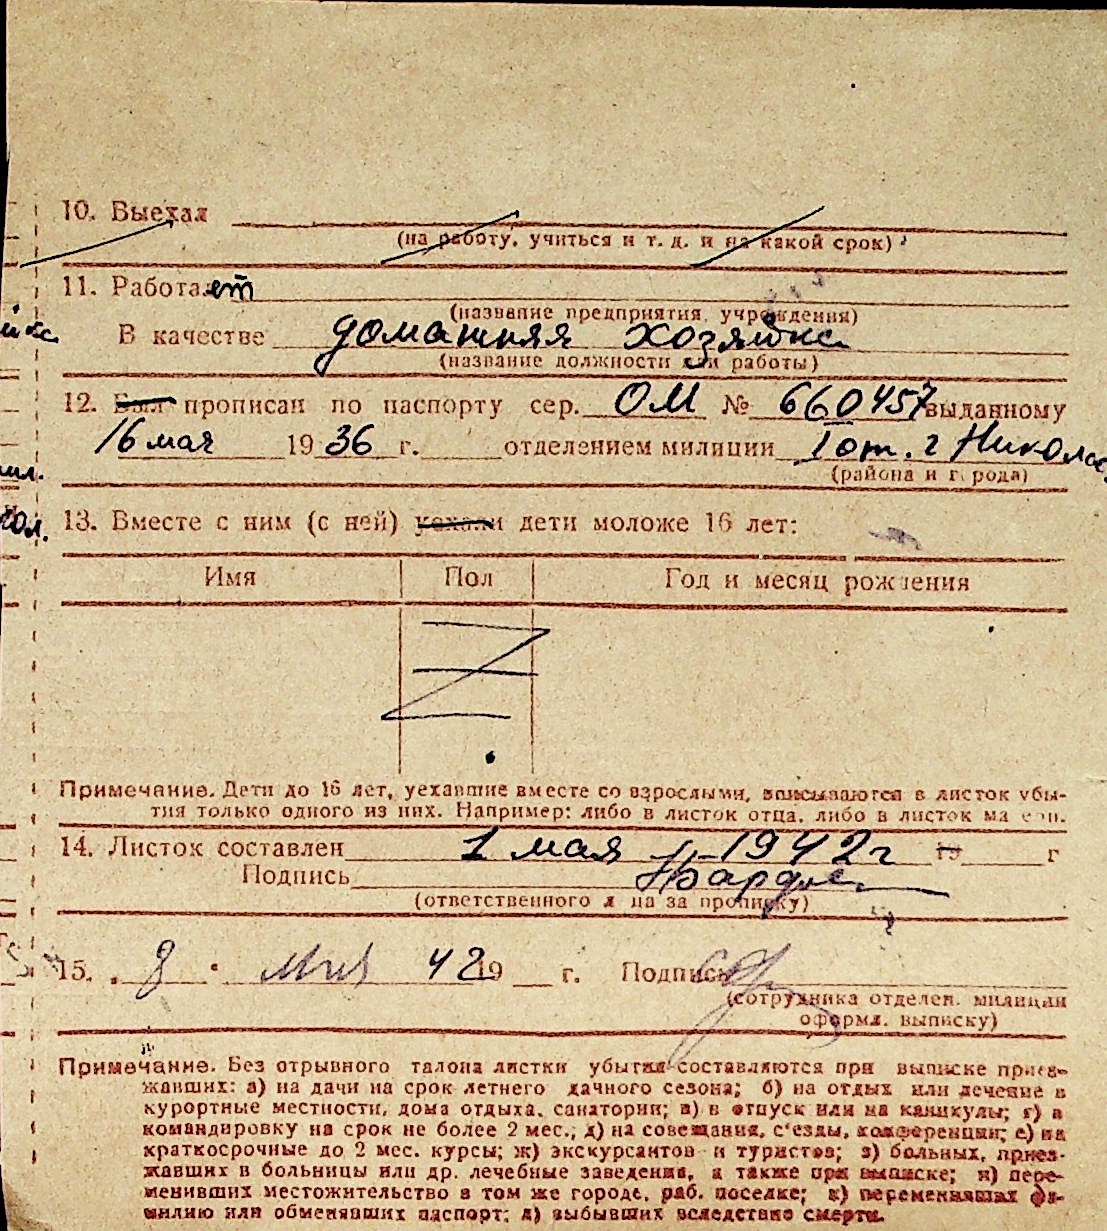 10. Выехал
(на работу, учиться и т. д. и на какой срок)
11. Работает
(название предприятия, учреждения)
В качестве домашняя хозяйка
(название должности или работы)
12. Был прописан по паспорту сер. ОМ № 660457 выданному
16 мая 1936 г. отделением милиции I от. г Николае
(района и города)
13. Вместе с ним (с ней) уехали дети моложе 16 лет:
Имя Пол Год и месяц рождения
Z
Примечание. Дети до 16 лет, уехавшие вместе со взрослыми, вписываются в листок убы-
тия только одного из них. Например: либо в листок отца, либо в листок матери.
14. Листок составлен 1 мая 1942 г 19 г
Подпись
(ответственного лица за прописку)
15. „8" мая 42 19 г. Подпись
(сотрудника отделен. милиции
оформл. выписку)
Примечание. Без отрывного талона листки убытия составляются при выписке приез-
жавших: а) на дачи на срок летнего дачного сезона; б) на отдых или лечение в
курортные местности, дома отдыха, санатории; в) в отпуск или на каникулы; г) в
командировку на срок не более 2 мес.; д) на совещания, с'езды, конференции; е) на
краткосрочные до 2 мес. курсы; ж) экскурсантов и туристов; з) больных, приез-
жавших в больницы или др. лечебные заведения, а также при выписке; и) пере-
менивших местожительство в том же городе, раб. поселке; к) переменивших фа-
милию или обменявших паспорт; л) выбывших вследствие смерти.